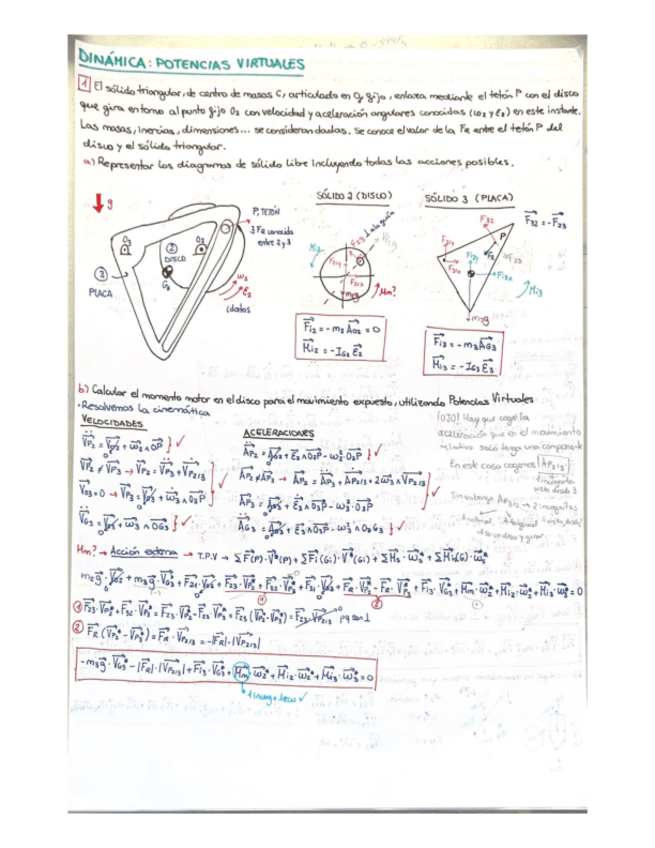 DINÁMICA: POTENCIAS VIRTUALES
1 El sólido triangular, de centro de masas C, articulado en O3 fijo, enlaza mediante el tetón P con el disco
que gira entorno al punto fijo O2 con velocidad y aceleración angulares conocidas (ω2 y ε2) en este instante.
Las masas, inercias, dimensiones... se consideran dadas. Se conoce el valor de la FR entre el tetón P del
disco y el sólido triangular.
a) Representar los diagramas de sólido libre incluyendo todas las acciones posibles.
g
P, TETÓN
∃ FR conocida
entre 2 y 3
O3
2
DISCO
O2
G2
3
PLACA
ω2
ε2
(datos
SÓLIDO 2 (DISCO)
Mi2
F23
Mm?
m2g
Fi2 = -m2 AO2 = 0
Mi2 = -IG2 ε2
SÓLIDO 3 (PLACA)
F32
F32 = -F23
P
Mi3
m3g
Fi3 = -m3 AG3
Mi3 = -IG3 ε3
b) Calcular el momento motor en el disco para el movimiento expuesto, utilizando Potencias Virtuales
· Resolvemos la cinemática
VELOCIDADES
VP2 = VO2 + ω2 ∧ O2P } ✓
VP2 ≠ VP3 → VP2 = VP3 + VP2/3
VO3 = 0 → VP3 = VO3 + ω3 ∧ O3P } ✓
VG3 = VO3 + ω3 ∧ OG3 } ✓
ACELERACIONES
AP2 ≠ AP3 → AP2 = AP3 + AP2/3 + 2ω3 ∧ VP2/3
AP3 = AO3 + ε3 ∧ O3P - ω3² · O3P
AG3 = AO3 + ε3 ∧ O3P - ω3² · O3G3 } ✓
¡OJO! Hay que coger la
aceleración que en el movimiento
relativo solo tenga una componente
En este caso cogemos AP2/3
1 incógnita
vista desde 3
Sin embargo AP3/2 → 2 incógnitas
Mm? → Acción externa → T.P.V → ΣF(P)·V*(P) + ΣFi(Gi)·V*(Gi) + ΣMs·ωs* + ΣMi(G)·ωs*
m2g·VG2* + m3g·VG3* + F21·VO2* + F23·VP2* + F32·VP3* + F31·VO3* + FR·VP2* - FR·VP3* + Fi3·VG3* + Mm·ω2* + Mi2·ω2* + Mi3·ω3* = 0
1 F23·VP2* + F32·VP3* = F23·VP2 - F23·VP3* = F23 (VP2* - VP3*) = F23·VP2/3* = 0 pq son ⊥
2 FR (VP2* - VP3*) = FR·VP2/3* = -|FR|·|VP2/3|
-m3g·VG3* - |FR|·|VP2/3| + Fi3·VG3* + Mm·ω2* + Mi2·ω2* + Mi3·ω3* = 0
1 incog + 1 ecu ✓